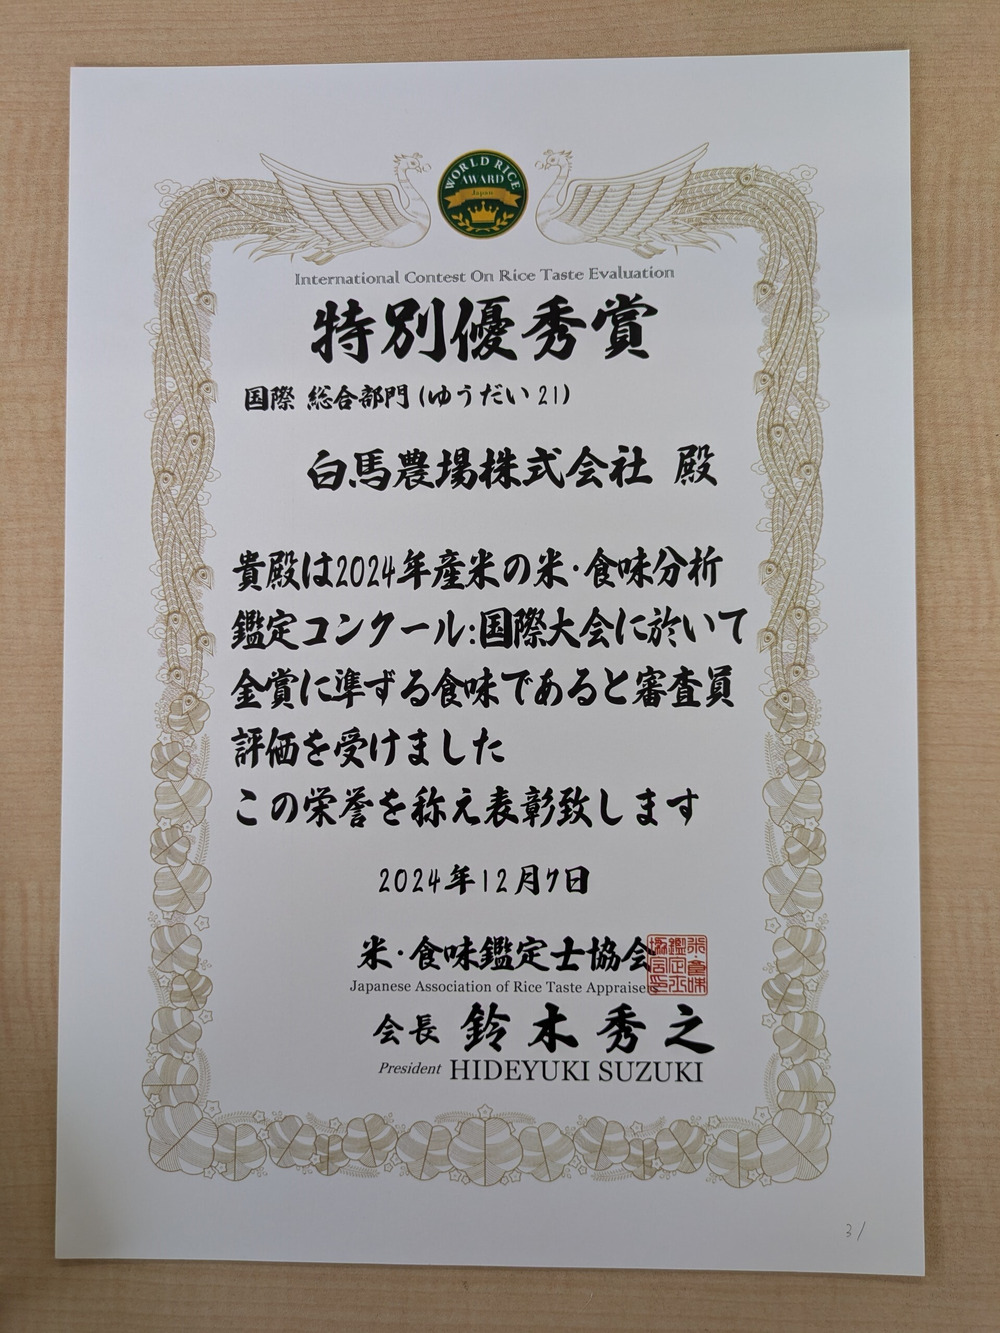 WORLD RICE
AWARD
Japan
International Contest On Rice Taste Evaluation
特別優秀賞
国際 総合部門(ゆうだい21)
白馬農場株式会社 殿
貴殿は2024年産米の米・食味分析
鑑定コンクール:国際大会に於いて
金賞に準ずる食味であると審査員
評価を受けました
この栄誉を称え表彰致します
2024年12月7日
米・食味鑑定士協会
Japanese Association of Rice Taste Appraisers
会長 鈴木秀之
President HIDEYUKI SUZUKI
31